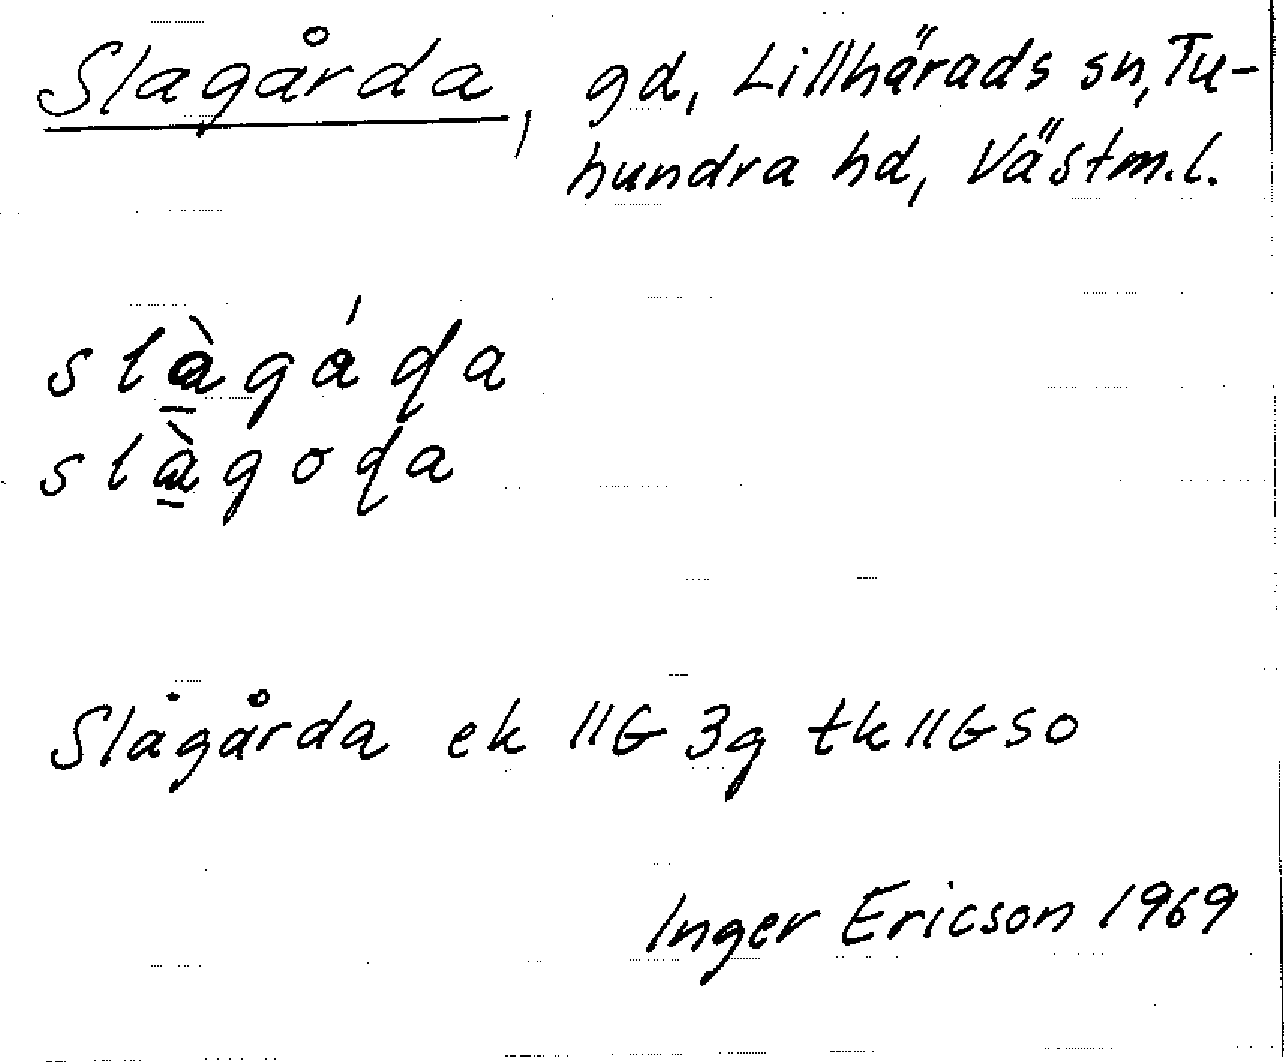 Slagårda, gd, Lillhärads sn, Tu-
hundra hd, Västm.l.
slàgáɖa
slàgoɖa
Slagårda ek 11G 3g tk 11GSO
Inger Ericson 1969